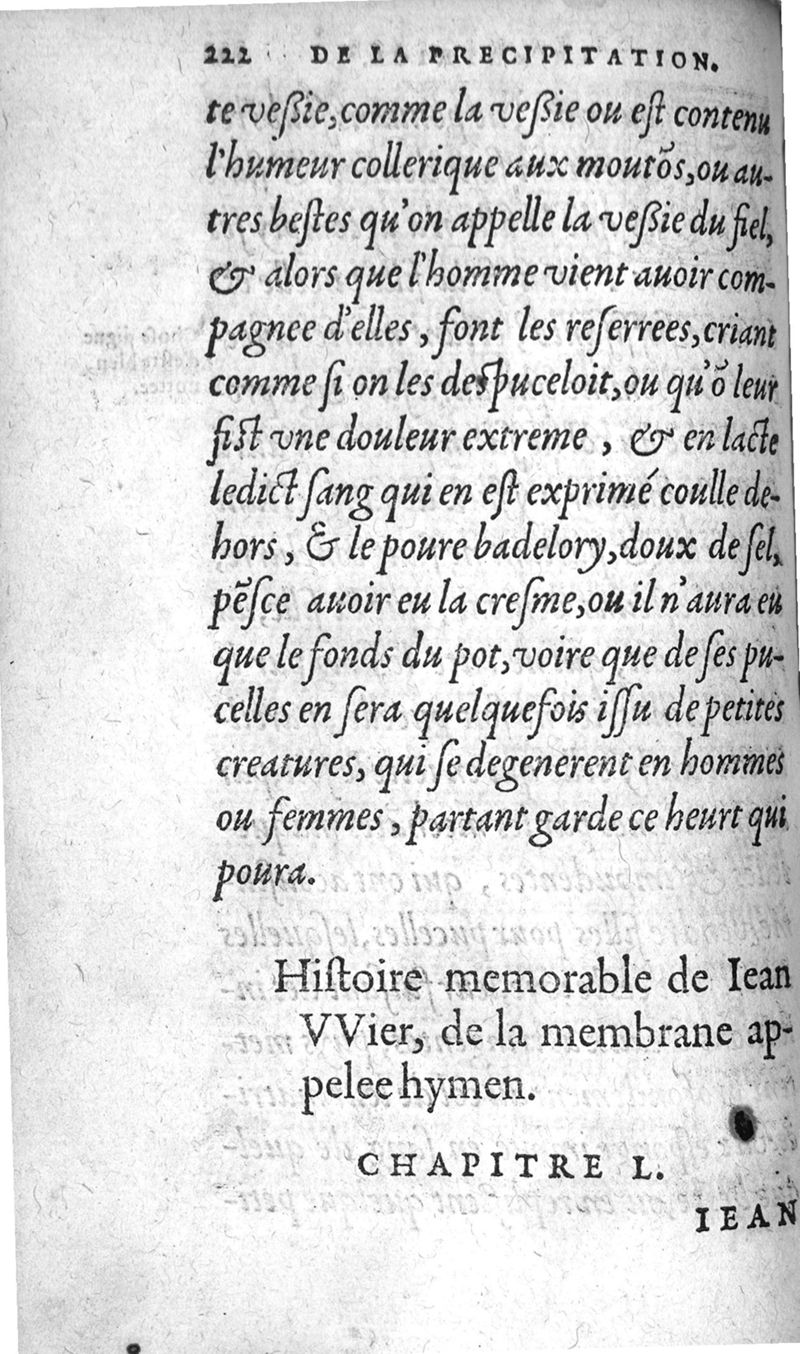 222 DE LA PRECIPITATION.
te veſsie, comme la veſsie ou eſt contenu
l'humeur collerique aux moutõs, ou au-
tres beſtes qu'on appelle la veſsie du fiel,
& alors que l'homme vient auoir com-
pagnee d'elles, font les reſerrees, criant
comme ſi on les deſpuceloit, ou qu'õ leur
fiſt vne douleur extreme, & en lacte
ledict ſang qui en eſt exprimé coulle de-
hors, & le poure badelory, doux de ſel,
pẽſce auoir eu la creſme, ou il n'aura eu
que le fonds du pot, voire que de ſes pu-
celles en ſera quelquefois iſſu de petites
creatures, qui ſe degenerent en hommes
ou femmes, partant garde ce heurt qui
poura.
Hiſtoire memorable de Iean
VVier, de la membrane ap-
pelee hymen.
CHAPITRE L.
IEAN